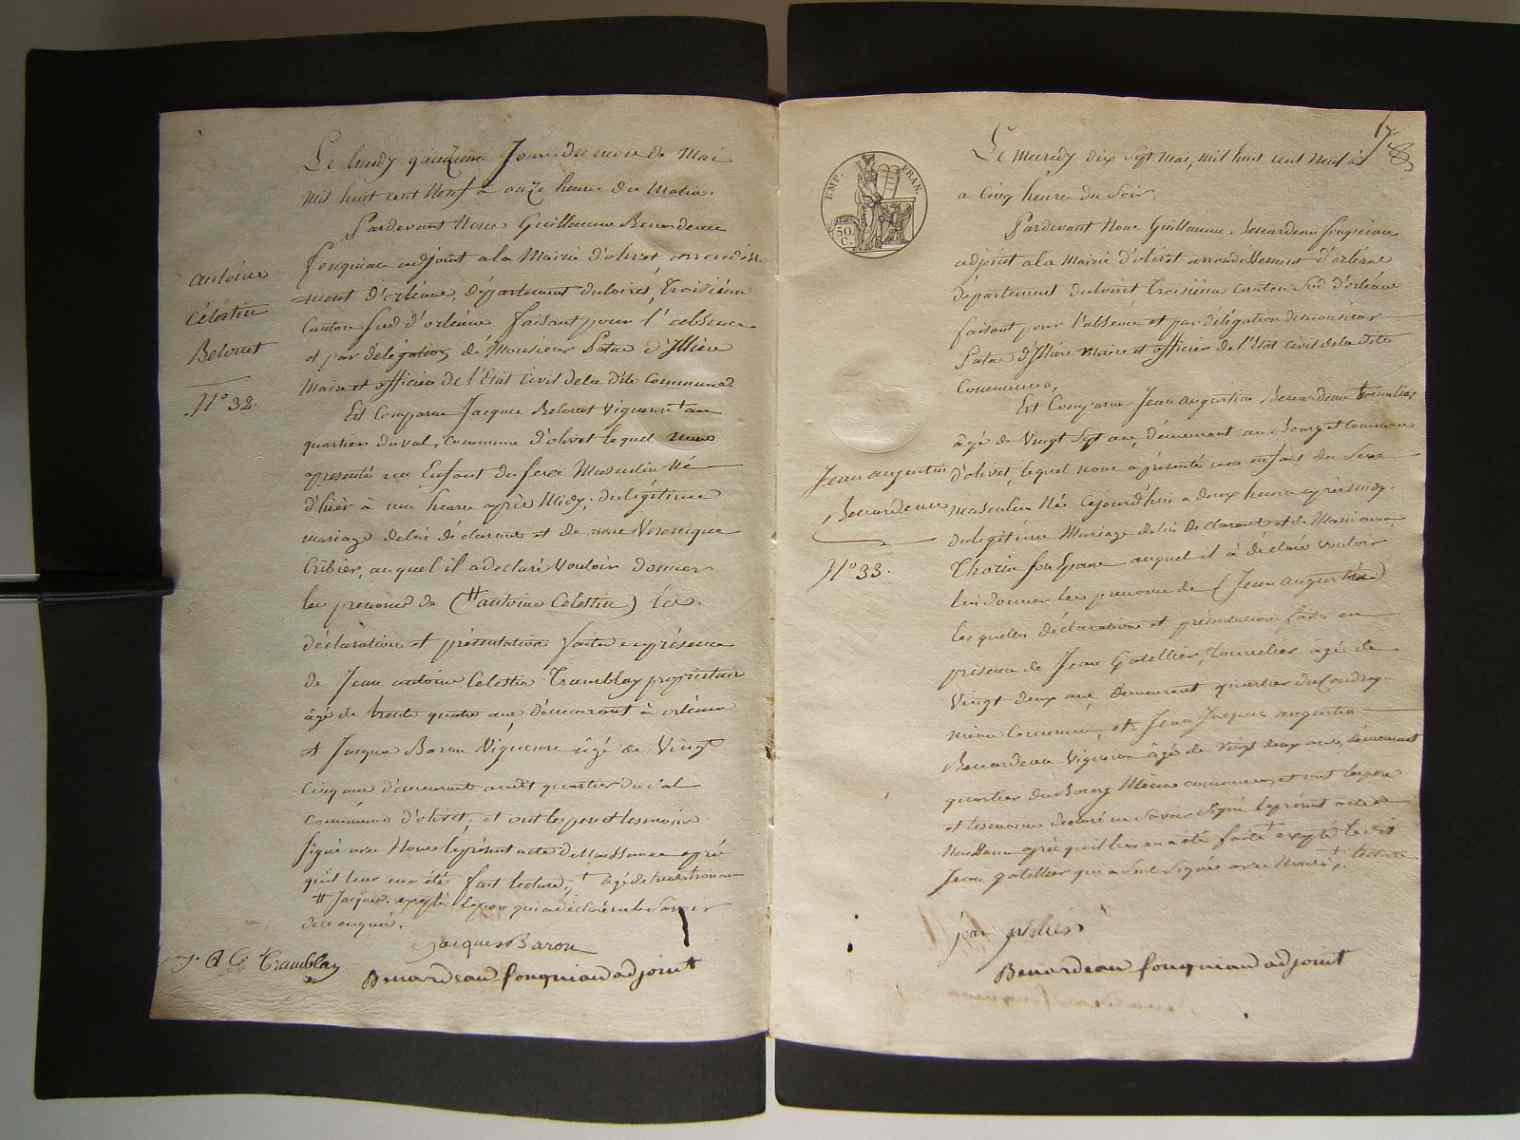 Le lundy quinzieme Jour du mois de Mai
mil huit cent Neuf a onze heure du Matin.
Pardevant Nous Guillaume Benardeau
fouqniau adjoint a la Mairie d'olivet arrondisse
ment d'orléans, département du loiret, troisieme
Canton Sud d'orléans faisant pour l'absence
et par délégation de Monsieur Patas d'Illiers
Maire et officier de l'Etat Civil de la dite Commune
Antoine
Célestin
Belouet
N° 32.
Est Comparu Jacque Belouet Vigneron + au
quartier du val, Commune d'olivet lequel nous
a presenté un Enfant du sexe Masculin Né
d'hier à une heure après Midy, du légitime
mariage de lui déclarant et de Veronique
Cribier, auquel il a declaré Vouloir donner
les prenoms de (# antoine Celestin) les
déclaration et présentation faite en présence
de Jean antoine Celestin Tramblay propriétaire
âgé de trente quatre ans, demeurant à orléans
et Jacque Baron Vigneron âgé de Vingt
Cinq ans demeurant audit quartier du val
commune d'olivet, et ont les pere et temoins
signé avec Nous le présent acte de Naissance après
qu'il leur en a été fait lecture, + âgé de trente
# Jacques. excepté le pere qui a déclaré ne le Savoir
de ce enquis.
Jacques Baron
J. A. C. Tramblay
Benardeau fouqniau adjoint
17
EMP. FRAN.
50
C.
Le Mercredy dix Sept Mai, mil huit cent Neuf
a Cinq heure du Soir.
Pardevant Nous Guillaume Benardeau fouqniau
adjoint a la Mairie d'olivet arrondissement d'orléans
département du loiret troisieme Canton Sud d'orléans
faisant pour l'absence et par délégation de monsieur
Patas d'Illiers Maire et officier de l'Etat Civil de la dite
Commune,
Est Comparu Jean augustin Benardeau tonnelier
âgé de Vingt Sept ans, demeurant au Bourg Commune
d'olivet, lequel nous a présenté un enfant du Sexe
masculin Né Cejourd'hui a deux heure après midy.
du légitime Mariage de lui Déclarant et de Marianne
Thorin son Epouse auquel il a déclaré Vouloir
lui donner les prenoms de (Jean augustin)
les quelles déclaration et présentation faite en
présence de Jean Gatellier, Tonnelier âgé de
Vingt deux ans, demeurant quartier du Coudray
même Commune, et Jean Jacques augustin
Benardeau Vigneron âgé de vingt deux ans, demeurant
quartier du Bourg Même commune, et ont les pere
et temoins declaré ne Savoir Signé le présent acte de
Naissance après qu'il leur en a été faite + excepté le dit
Jean gatellier qui a Signé avec Nous + lecture
Jean augustin
Benardeau
N° 33.
Benardeau fouqniau adjoint